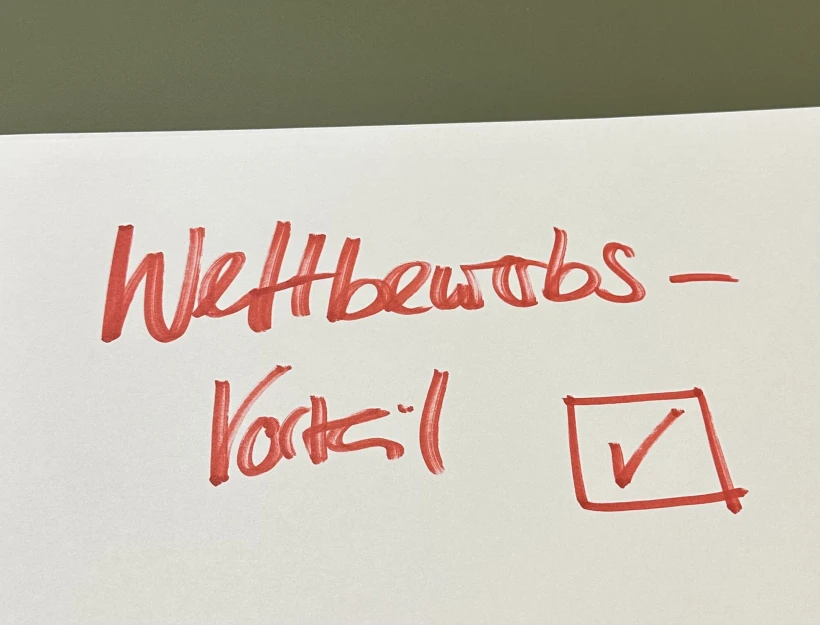 Wettbewerbs-
Vorteil